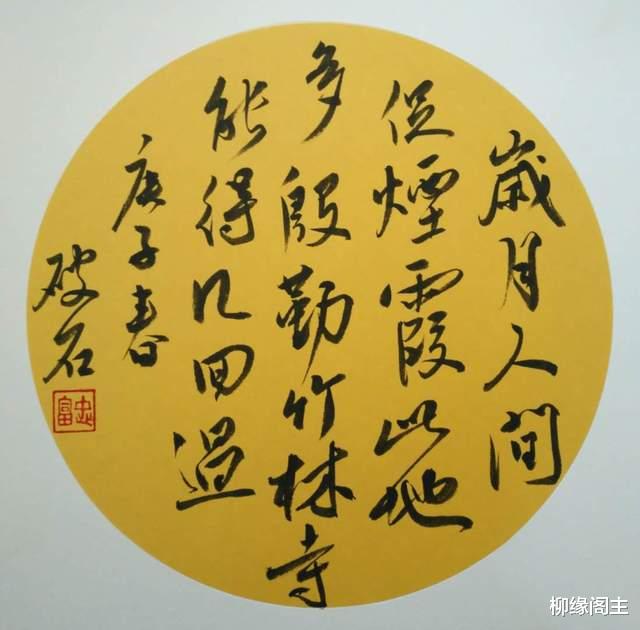 歲月人間
促煙霞此地
多殷勤竹林寺
能得几回過
庚子春
破石
忠富
柳缘阁主